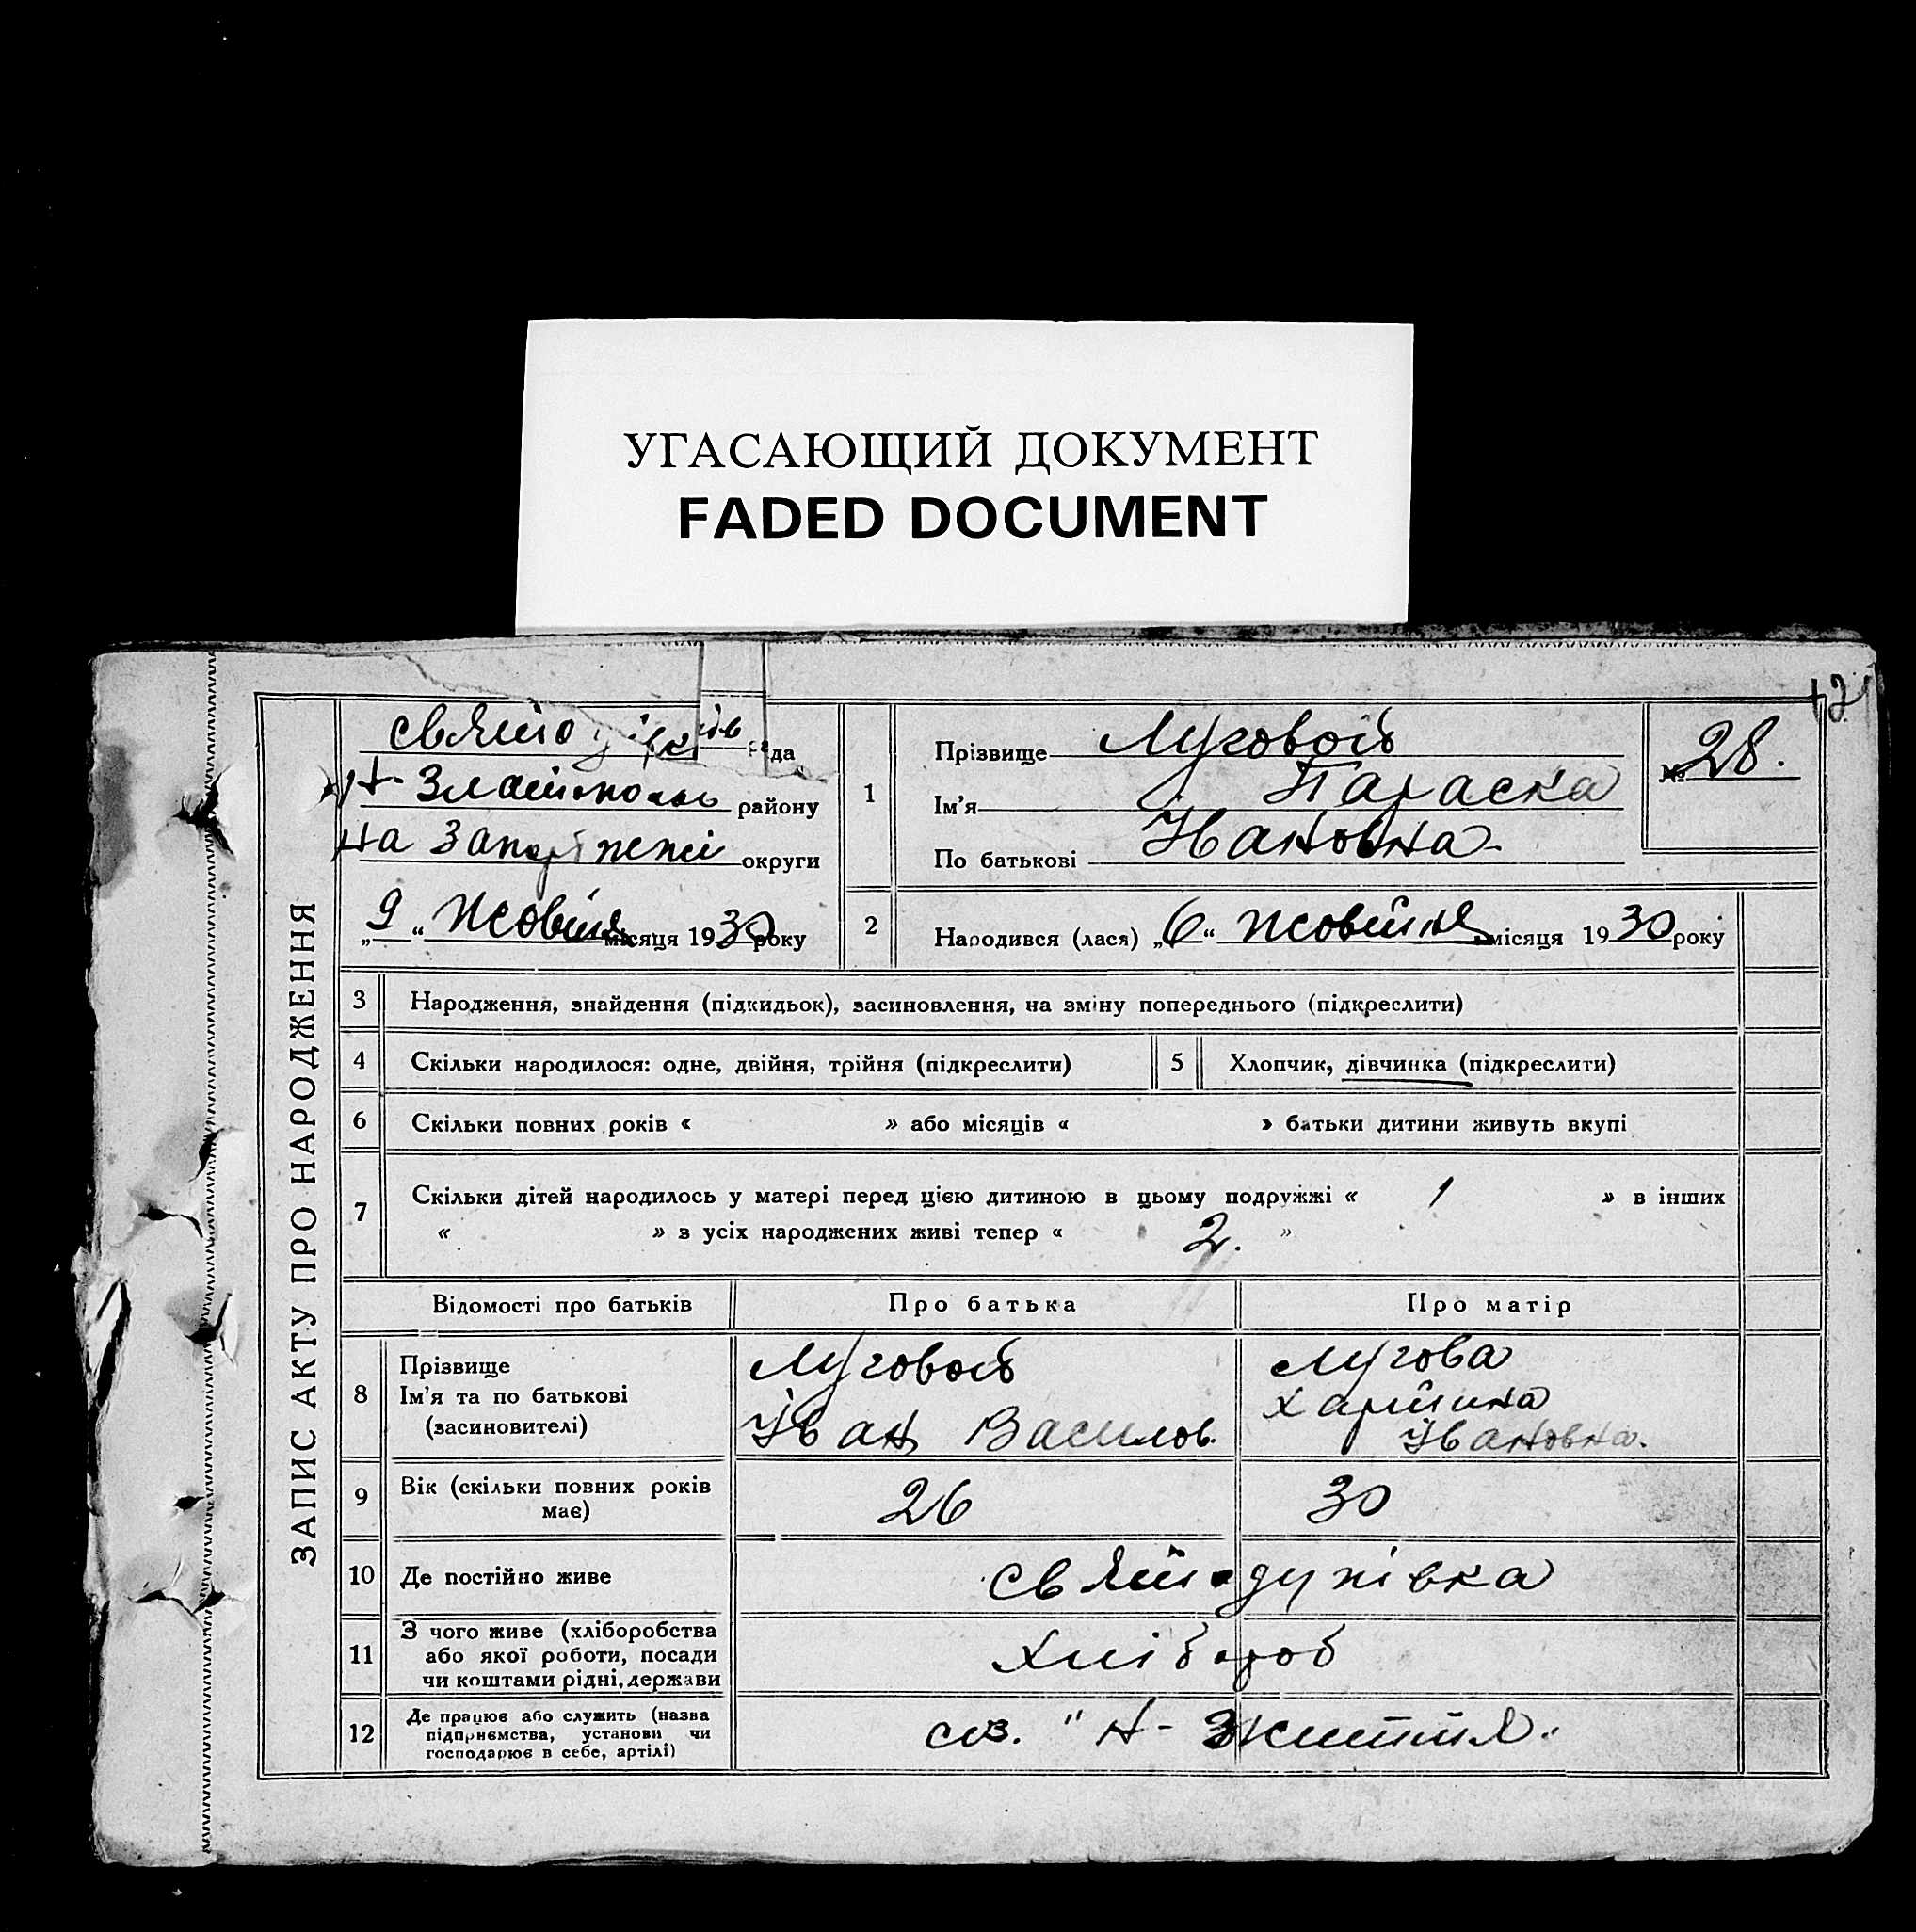 УГАСАЮЩИЙ ДОКУМЕНТ
FADED DOCUMENT
ЗАПИС АКТУ ПРО НАРОДЖЕННЯ
рада
Н-Златопол району
на Запоріжжі округи
„9“ Жовтня місяця 1930 року
1
Прізвище Луговой
Ім’я Параска
По батькові Івановна
№ 28.
2
Народився (лася) „6“ жовтня місяця 1930 року
3 Народження, знайдення (підкидьок), засиновлення, на зміну попереднього (підкреслити)
4 Скільки народилося: одне, двійня, трійня (підкреслити)
5 Хлопчик, дівчинка (підкреслити)
6 Скільки повних років « » або місяців « » батьки дитини живуть вкупі
7 Скільки дітей народилось у матері перед цією дитиною в цьому подружжі « 1 » в інших
« » з усіх народжених живі тепер « 2. »
Відомості про батьків Про батька Про матір
8 Прізвище
Ім’я та по батькові
(засиновителі)
Луговой
Іван Василов.
Лугова
Харитина
Івановна.
9 Вік (скільки повних років
має)
26 30
10 Де постійно живе
Святодухівка
11 З чого живе (хліборобства
або якої роботи, посади
чи коштами рідні, держави
Хлібороб
12 Де працює або служить (назва
підприємства, установи чи
господарює в себе, артілі)
"Н-Життя"